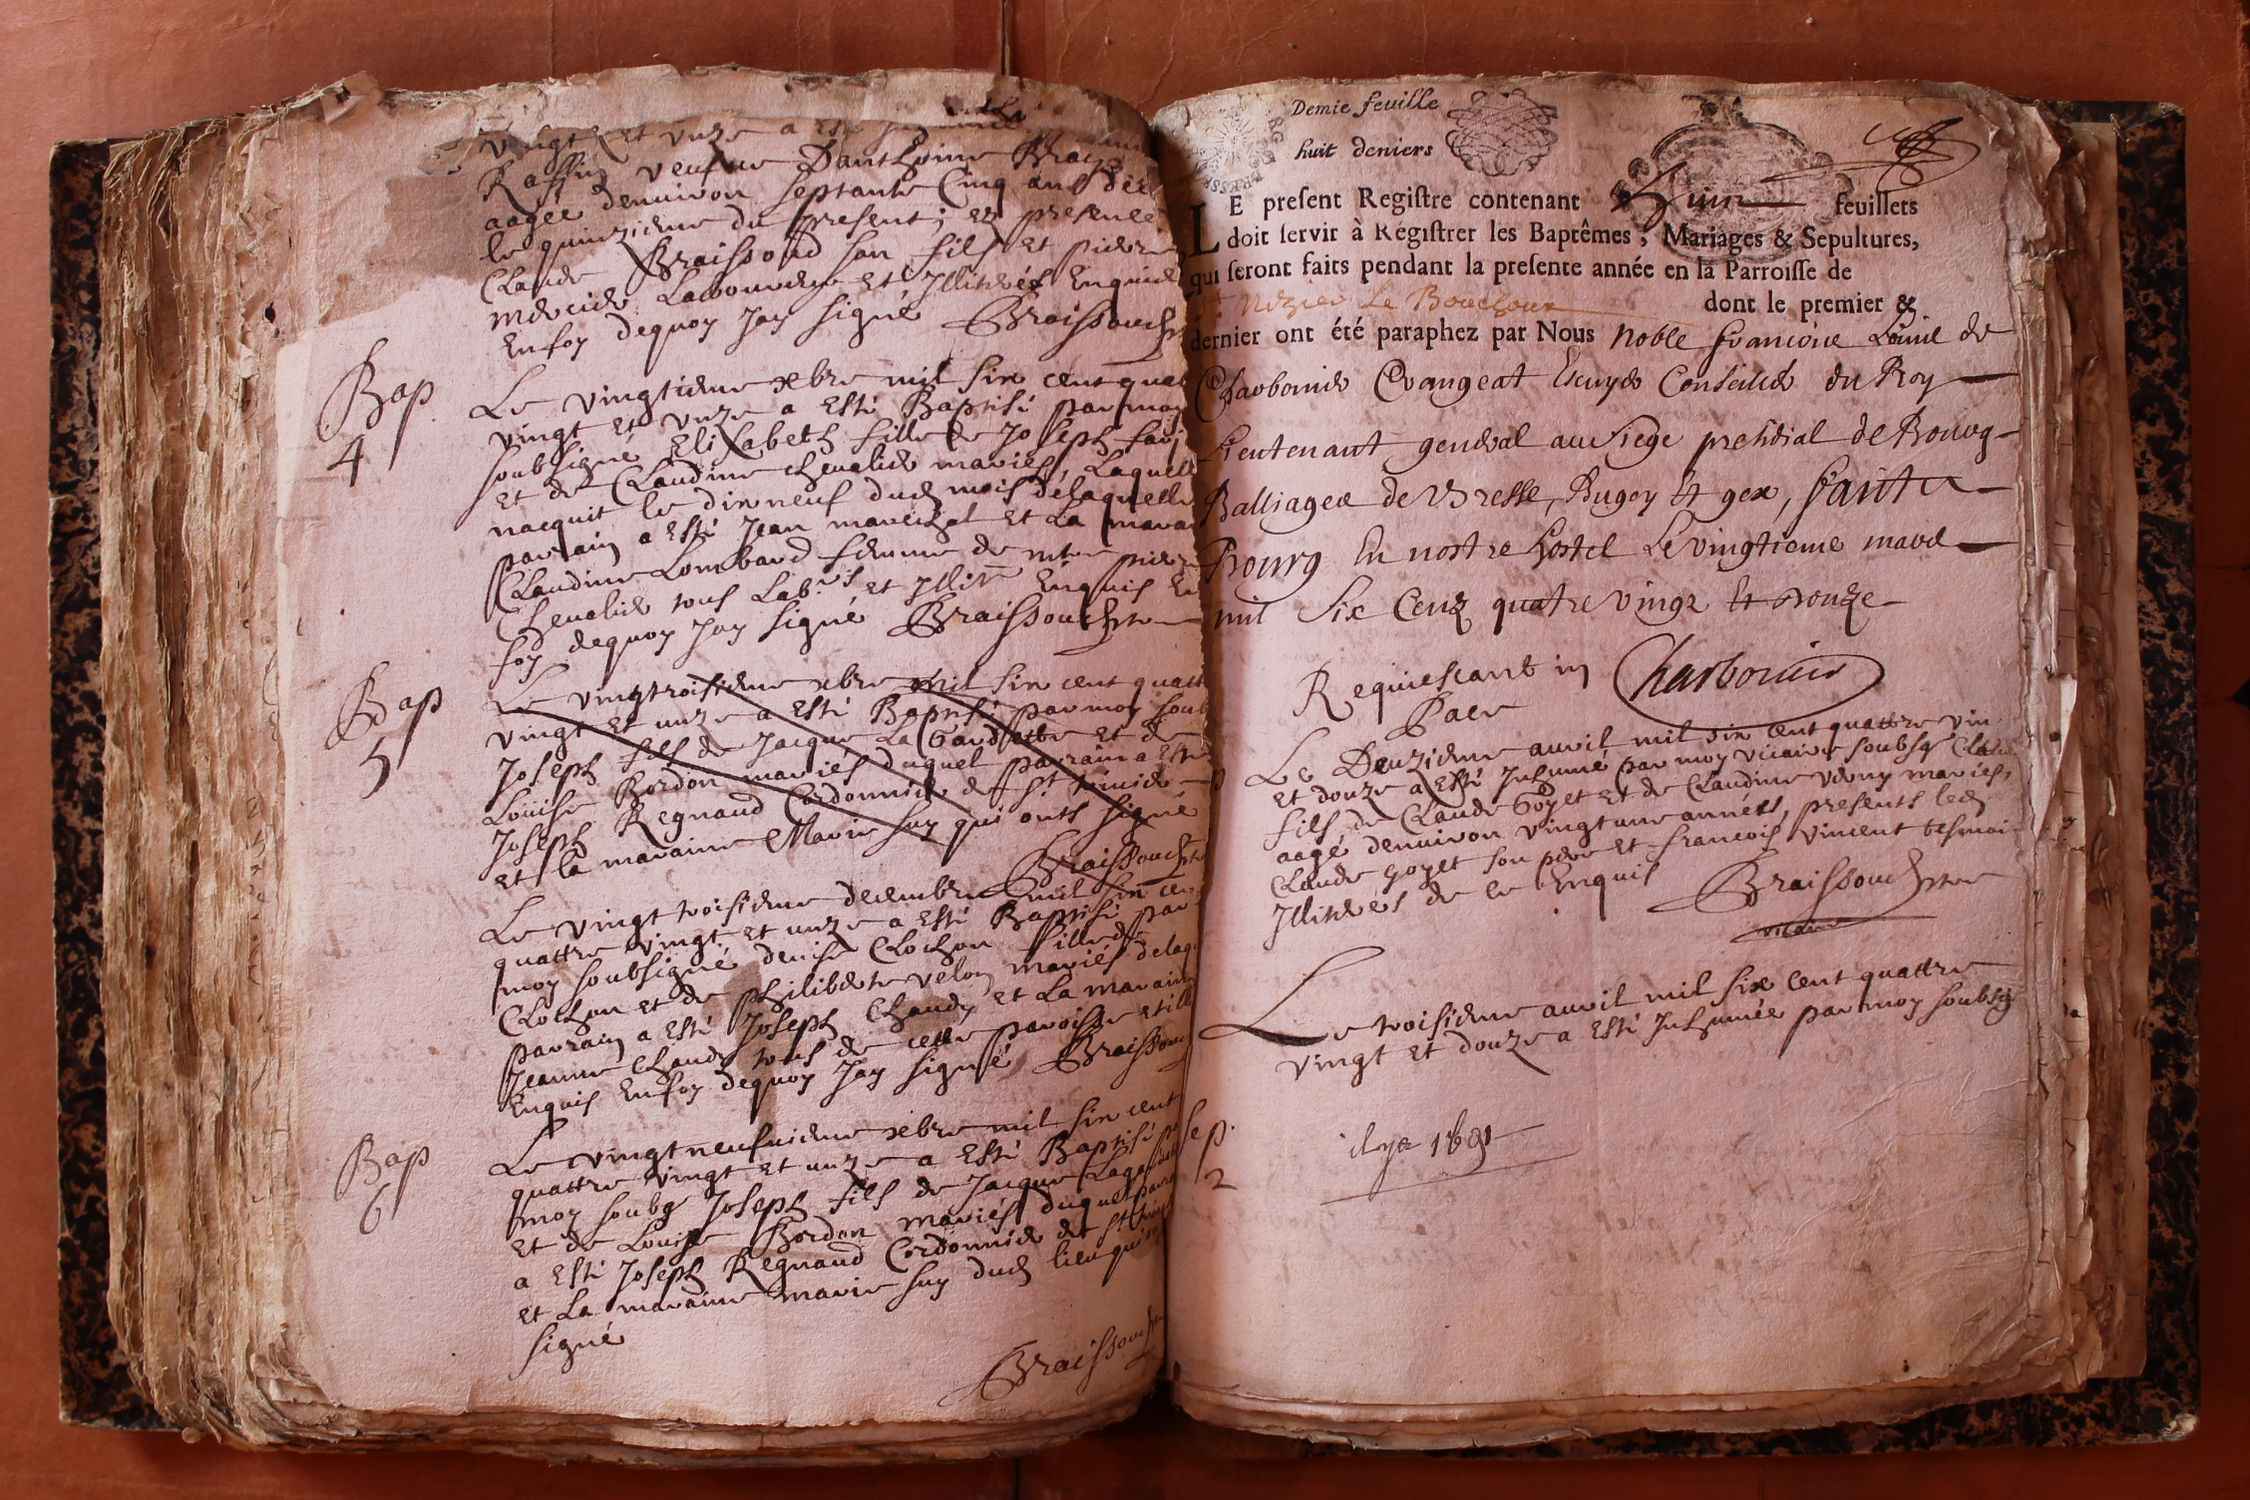 vingt et unze a esté
Raffin veufve Danthoine
aagee denuiron septante Cinq ans
le quinzieme du present; ez presence
Claude Braissoud son fils et pierre
mercier Laboureurs et Illiterés Enquis
En foy dequoy Jay signé Braissoud
Bap
4
Le vingtieme xbre mil six cent quat
vingt et unze a esté Baptisé par moy
soubsigné Elisabeth fille de Joseph
et de Claudine chevalier mariés, Laquelle
nacquit le dixneuf dud mois delaquelle
parrain a esté Jean marechal et La marai
Claudine Lombard femme de mtre pierre
Chevalier tous Lab.rs et Illite Enquis En
foy dequoy Jay signé Braissoud
Bap
5
Le vingtroisieme xbre mil six cent quatt
vingt et unze a esté Baptisé par moy soub
Joseph fils de Jacque La Gardette et de
Louise Bordon mariés duquel parrain a esté
Joseph Regnaud Cordonnier de St trivier
et la maraine Marie suy qui onts signé
Braissoud
Le vingt troisieme decembre mil six cen
quattre vingt et unze a esté Baptisé par
moy soubsigné denise Clochon fille de
Clochon et de philiberte velon mariés delaq
parrain a esté Joseph Chandy et La maraine
Jeanne Chandy tous de cette paroisse et ill
Enquis En foy dequoy Jay signé Braissoud
Bap
6
Le vingtneufvieme xbre mil six cent
quattre vingt et unze a esté Baptisé p
moy soubsg Joseph fils de Jacque Lagardette
et de Louise Bordon mariés duquel parra
a esté Joseph Regnaud Cordonnier de St triv
et La maraine marie suy dud lieu qui
signé
Braissoud
Demie feuille
huit deniers
LE present Registre contenant feuillets
doit servir à Registrer les Baptêmes, Mariages & Sepultures,
qui seront faits pendant la presente année en la Parroisse de
St Nizier Le Bouchoux dont le premier &
dernier ont été paraphez par Nous Noble francois Louis de
Charbonnier Crangeat Escuyer Conseiller du Roy
Lieutenant general au siege presidial de Bourg
Balliagee de Bresse, Bugey Et gex, fait a
Bourg En nostre hostel Le vingtieme mars
mil Six Cens quatre vingz Et onze
Requiescant in Charbonnier
Pace
Le Deuzieme avril mil six cent quattre vin
et douze a esté Inhumé par moy vicaire soubsg Claude
fils de Claude Goyet et de Claudine mariés,
aagé denuiron vingt une années, presents led
Claude goyet son pere et francois vincent tesmoi
Illiterés de ce Enquis Braissoud
vicaire
Le troisieme avril mil six cent quattre
vingt et douze a esté Inhumée par moy soubsg
sep.
2
1691